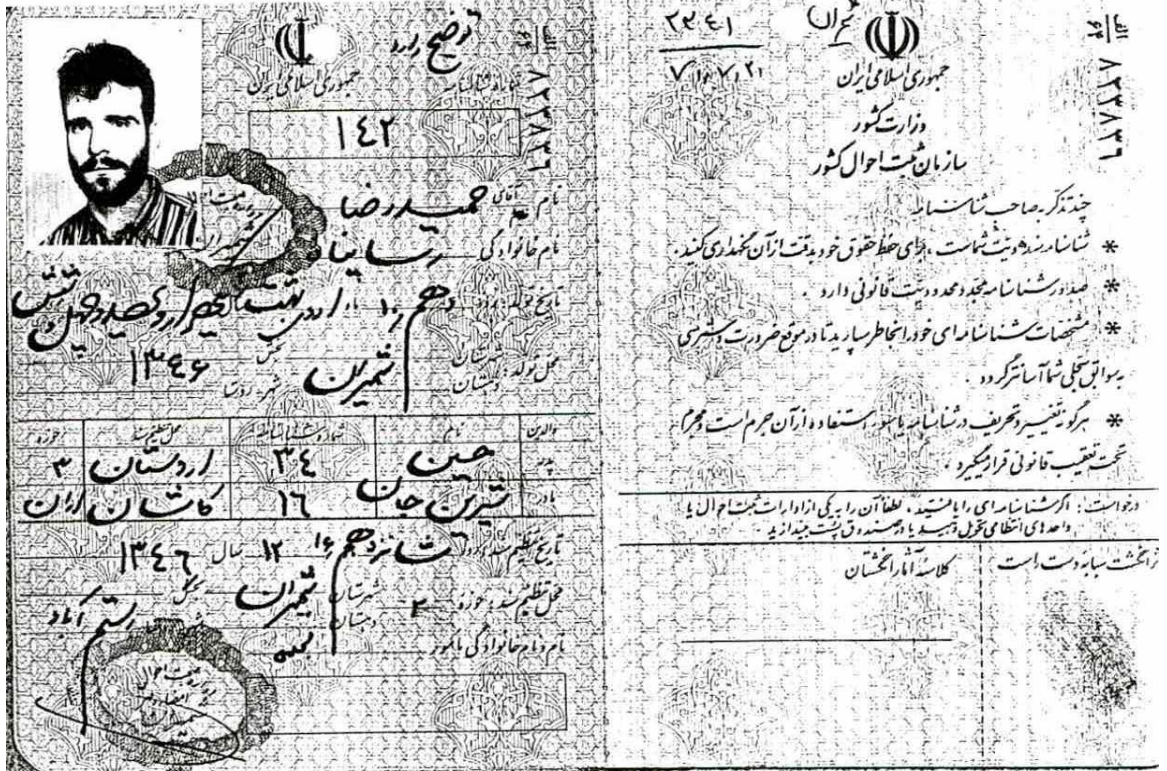 ۲۳۴۱
تهران
۷۱/۷/۲۱
جمهوری اسلامی ایران
وزارت کشور
سازمان ثبت احوال کشور
الف
۶۴
۸۲۳۸۳۹
چند تذکر به صاحب شناسنامه
* شناسنامه سند هویت شماست ، برای حفظ حقوق خود بدقت از آن نگهداری کنید .
* صدور شناسنامه مجدد محدودیت قانونی دارد .
* مشخصات شناسنامه ای خود را بخاطر بسپارید تا در موقع ضرورت دسترسی
به سوابق سجلی شما آسانتر گردد .
* هرگونه تغییر و تحریف در شناسنامه یا سوء استفاده از آن جرم است و مجرم
تحت تعقیب قانونی قرار میگیرد .
درخواست : اگر شناسنامه ای را یافتید ، لطفاً آن را به یکی از ادارات ثبت احوال یا
واحدهای انتظامی تحویل دهید یا در صندوق پست بیندازید .
اثر انگشت سبابه دست راست
کلاسه آثار انگشتان
توضیح دارد
جمهوری اسلامی ایران
شماره شناسنامه
۱۴۲
نام آقای حمیدرضا
نام خانوادگی
تاریخ تولد روز دهم ۱۰ ماه
۱۳۴۶
محل تولد : شهرستان شمیران بخش
دهستان شهر - روستا
والدین نام شماره شناسنامه محل تنظیم سند حوزه
پدر حسین ۳۴ اردستان ۳
مادر شیرین جان ۱۶ کاشان
تاریخ تنظیم سند : روز شانزدهم ۱۶ ۱۲ سال ۱۳۴۶
محل تنظیم سند : حوزه ۲ شهرستان شمیران بخش رستم آباد
دهستان
نام و نام خانوادگی مامور